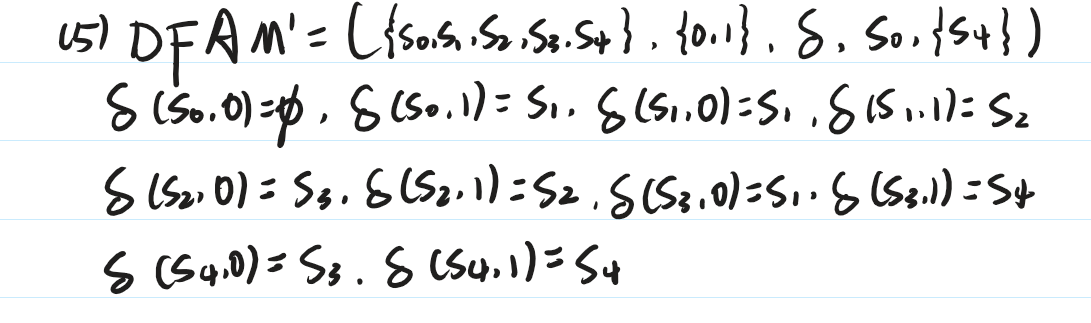 (5) DFA M' = ({S₀,S₁,S₂,S₃.S₄}, {0,1}, δ, S₀,{S₄})
δ(S₀,0)=φ, δ(S₀,1)=S₁, δ(S₁,0)=S₁, δ(S₁,1)=S₂
δ(S₂,0)=S₃, δ(S₂,1)=S₂, δ(S₃,0)=S₁, δ(S₃,1)=S₄
δ(S₄,0)=S₃. δ(S₄,1)=S₄